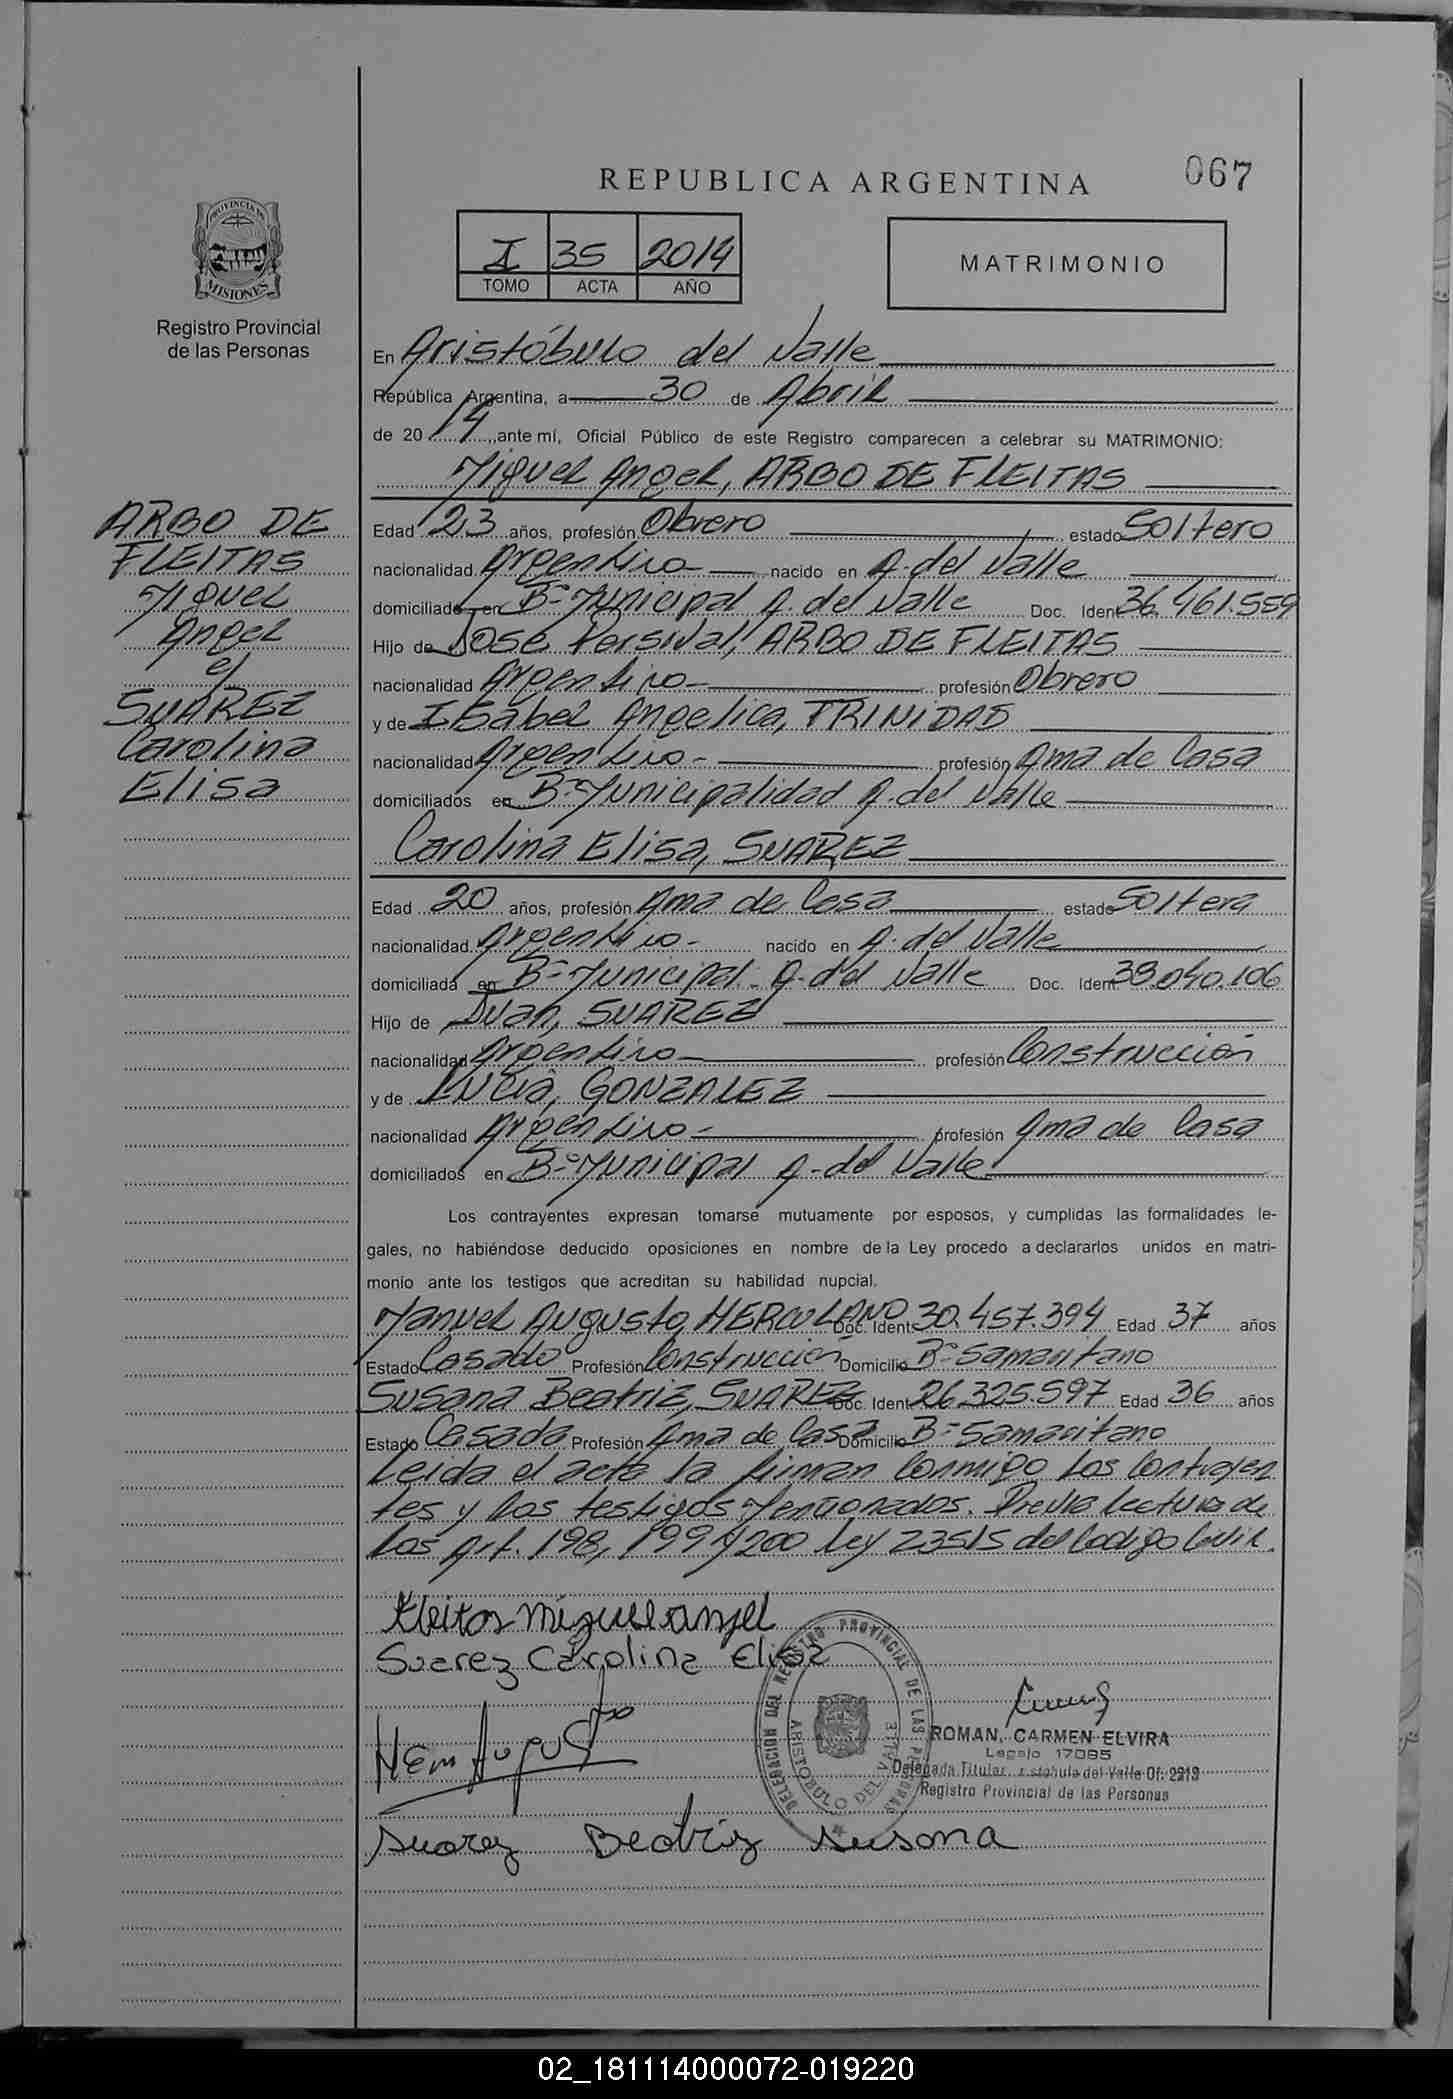 067
REPUBLICA ARGENTINA
PROVINCIA DE
MISIONES
Registro Provincial
de las Personas
I 35 2014
TOMO ACTA AÑO
MATRIMONIO
En Aristóbulo del Valle
República Argentina, a 30 de Abril
de 2014, ante mí, Oficial Público de este Registro comparecen a celebrar su MATRIMONIO:
Miguel Angel, ARBO DE FLEITAS
ARBO DE
FLEITAS
Miguel
Angel
y
SUAREZ
Carolina
Elisa
Edad 23 años, profesión Obrero estado Soltero
nacionalidad Argentina nacido en A. del Valle
domiciliado en B° Municipal A. del Valle Doc. Ident 36.461.559
Hijo de José Persival, ARBO DE FLEITAS
nacionalidad Argentino profesión Obrero
y de Isabel Angelica, TRINIDAD
nacionalidad Argentino profesión Ama de Casa
domiciliados en B° Municipalidad A. del Valle
Carolina Elisa, SUAREZ
Edad 20 años, profesión Ama de Casa estado Soltera
nacionalidad Argentino nacido en A. del Valle
domiciliada en B° Municipal A. del Valle Doc. Ident 38.040.106
Hijo de Juan, SUAREZ
nacionalidad Argentino profesión Construcción
y de Lucia, GONZALEZ
nacionalidad Argentino profesión Ama de Casa
domiciliados en B° Municipal A. del Valle
Los contrayentes expresan tomarse mutuamente por esposos, y cumplidas las formalidades le-
gales, no habiéndose deducido oposiciones en nombre de la Ley procedo a declararlos unidos en matri-
monio ante los testigos que acreditan su habilidad nupcial.
Manuel Augusto, HERCULANO Doc. Ident 30.457.394 Edad 37 años
Estado Casado Profesión Construcción Domicilio B° Samaritano
Susana Beatriz, SUAREZ Doc. Ident 26.325.597 Edad 36 años
Estado Casada Profesión Ama de Casa Domicilio B° Samaritano
Leida el acta la firman Conmigo Los Contrayen
tes y Los testigos Mencionados. Previa lectura de
Los Art. 198, 199 y 200 Ley 23515 del Codigo Civil.
Fleitas Miguel angel
Suarez Carolina Elisa
Her Augusto
DELEGACION DEL REGISTRO PROVINCIAL DE LAS PERSONAS
ARISTOBULO DEL VALLE
ROMAN, CARMEN ELVIRA
Legajo 17095
Delegada Titular Aristóbulo del Valle Of. 2213
Registro Provincial de las Personas
Suarez Beatriz Susana
02_181114000072-019220